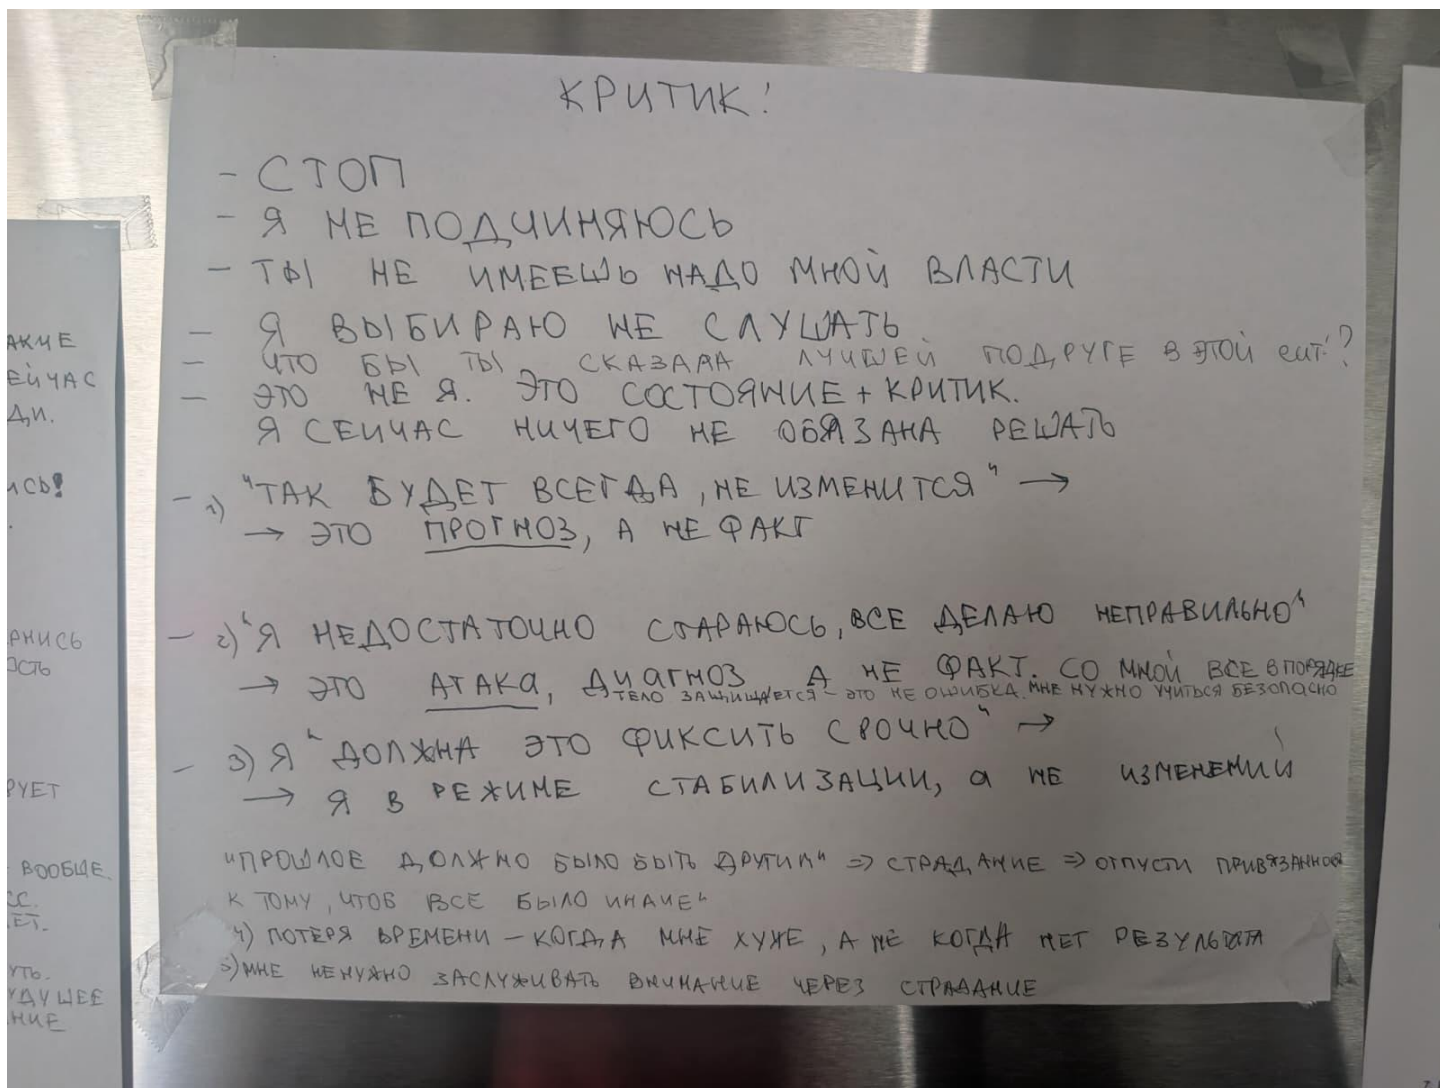 КРИТИК!
- СТОП
- Я НЕ ПОДЧИНЯЮСЬ
- ТЫ НЕ ИМЕЕШЬ НАДО МНОЙ ВЛАСТИ
- Я ВЫБИРАЮ НЕ СЛУШАТЬ
- ЧТО БЫ ТЫ СКАЗАЛА ЛУЧШЕЙ ПОДРУГЕ В ЭТОЙ СИТ.?
- ЭТО НЕ Я. ЭТО СОСТОЯНИЕ + КРИТИК.
Я СЕЙЧАС НИЧЕГО НЕ ОБЯЗАНА РЕШАТЬ
- 1) "ТАК БУДЕТ ВСЕГДА, НЕ ИЗМЕНИТСЯ" →
→ ЭТО ПРОГНОЗ, А НЕ ФАКТ
- 2) "Я НЕДОСТАТОЧНО СТАРАЮСЬ, ВСЕ ДЕЛАЮ НЕПРАВИЛЬНО"
→ ЭТО АТАКА, ДИАГНОЗ А НЕ ФАКТ. СО МНОЙ ВСЕ В ПОРЯДКЕ
ТЕЛО ЗАЩИЩАЕТСЯ - ЭТО НЕ ОШИБКА. МНЕ НУЖНО УЧИТЬСЯ БЕЗОПАСНО
- 3) Я "ДОЛЖНА ЭТО ФИКСИТЬ СРОЧНО" →
→ Я В РЕЖИМЕ СТАБИЛИЗАЦИИ, а НЕ ИЗМЕНЕНИЙ
"ПРОШЛОЕ ДОЛЖНО БЫЛО БЫТЬ ДРУГИМ" ⇒ СТРАДАНИЕ ⇒ ОТПУСТИ
К ТОМУ, ЧТОБ ВСЕ БЫЛО ИНАЧЕ"
4) ПОТЕРЯ ВРЕМЕНИ - КОГДА МНЕ ХУЖЕ, А НЕ КОГДА НЕТ РЕЗУЛЬТАТА
5) МНЕ НЕ НУЖНО ЗАСЛУЖИВАТЬ ВНИМАНИЕ ЧЕРЕЗ СТРАДАНИЕ
ВООБЩЕ.